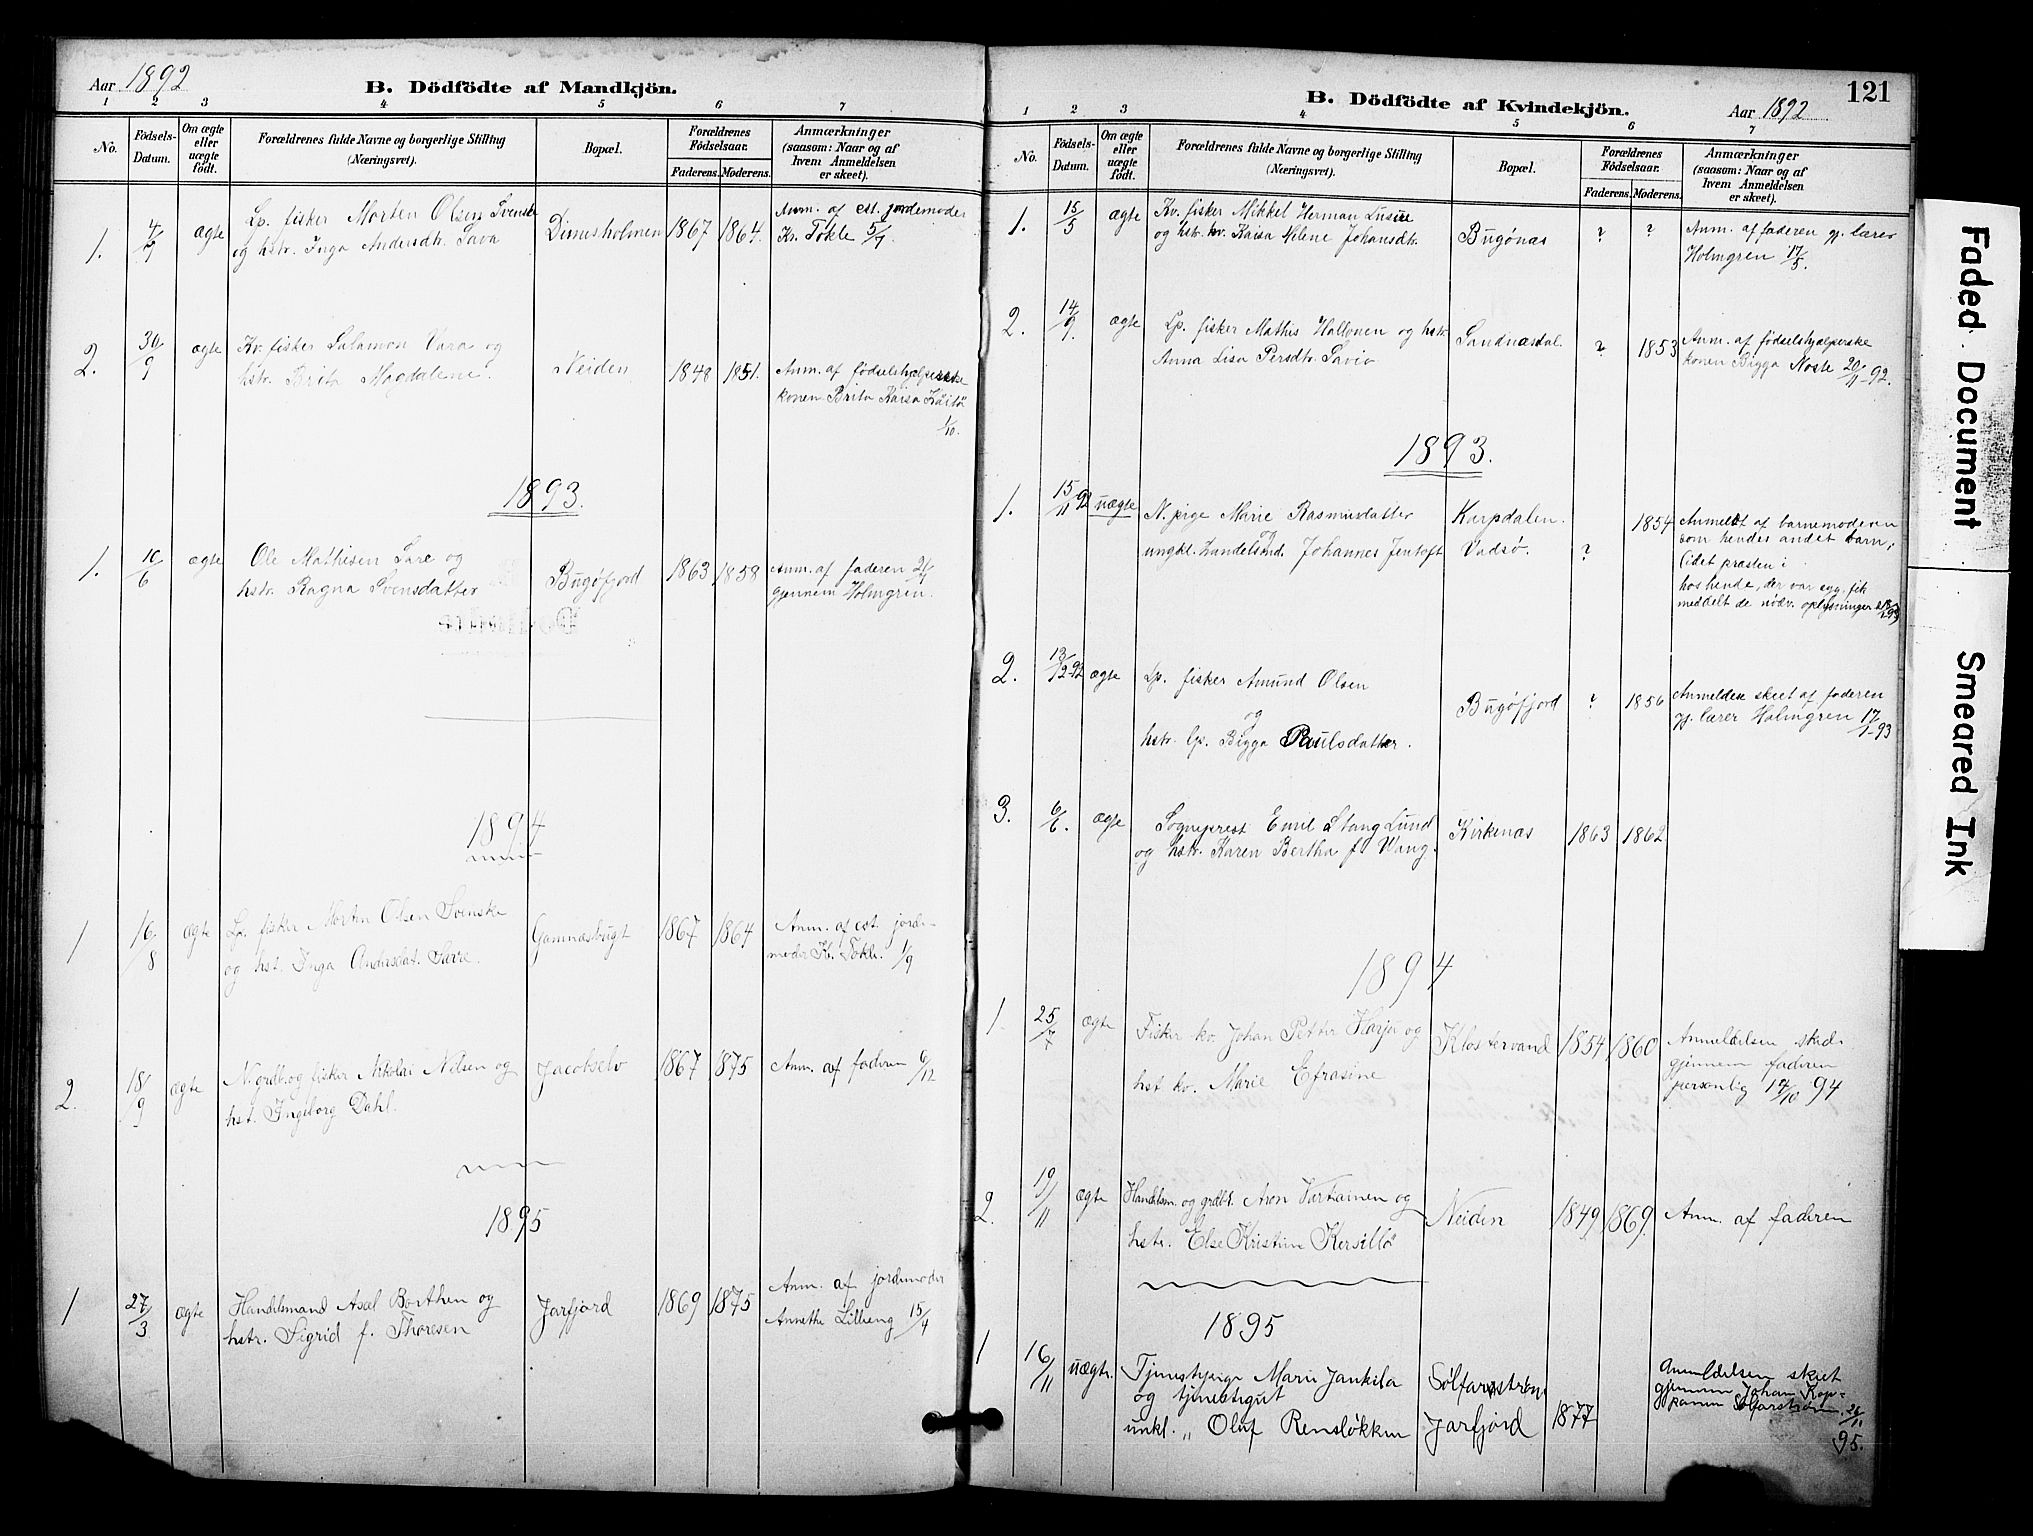 Aar 1892
B. Dödfödte af Mandkjön.
1 2 3 4 5 6 7
No.
Födsels-
Datum.
Om ægte
eller
uægte
födt.
Forældrenes fulde Navne og borgerlige Stilling
(Næringsvei).
Bopæl.
Forældrenes
Födselsaar.
Faderens. Moderens.
Anmærkninger
(saasom: Naar og af
hvem Anmeldelsen
er skeet).
1. 4/7 ægte
Lp. fisker Morten Olsen Svenske
og hstr. Inga Andersdtr. Sava
1867 1864.
Anm. af est. jordemoder
Kr. Tokle 5/7
2. 30/9 ægte
Kv. fisker Salamon Vara og
hstr. Brita Magdalene.
Neiden
1848 1851.
Anm. af fødselshjælperske
konen Brita Kaisa
1/10.
1893.
1. 10/6 ægte
Ole Mathisen Sare og
hstr. Ragna Svensdatter
Bugøfjord
1863 1858
Anm. af faderen 21/7
gjennem Holmgren.
1894
1 16/8 ægte
Lp. fisker Morten Olsen Svenske
og hst. Inga Andersdat. Sarre.
Gamnæsbugt
1867 1864
Anm. af est. jorde-
moder K. Tokle. 1/9
2. 18/9 ægte
N. grdb. og fisker Nikolai Nilsen og
hst. Ingeborg Dahl.
Jacobselv
1867 1875
Anm. af faderen 6/12
1895
1 27/3 ægte
Handelsmand Axel Borthen og
hstr. Sigrid f. Thoresen
Jarfjord
1869 1875
Anm. af jordemoder
Annethe Lilleeng 15/4
B. Dödfödte af Kvindekjön.
Aar 1892
121
1 2 3 4 5 6 7
No.
Födsels-
Datum.
Om ægte
eller
uægte
födt.
Forældrenes fulde Navne og borgerlige Stilling
(Næringsvei).
Bopæl.
Forældrenes
Födselsaar.
Faderens. Moderens.
Anmærkninger
(saasom: Naar og af
hvem Anmeldelsen
er skeet).
1. 15/5 ægte
Kv. fisker Mikkel Herman
og hstr. kv. Kaisa Helene Johansdtr.
Bugønæs
? ?
Anm. af faderen gj. lærer
Holmgren 17/5.
2. 14/9. ægte
Lp. fisker Mathis Haltonen og hstr.
Anna Lisa Persdtr. Savio
Sandnæsdal.
? 1853
Anm. af fødselshjælperske
konen Bigga Noste 20/11-92.
1893.
1. 15/11 92 uægte
N. pige Marie Rasmusdatter
og
ungkl. handelsmd. Johannes Jentoft
Karpdalen.
Vadsø.
? 1854
Anmeldt af barnemoderen
som hendes andet barn,
idet præsten i
hos hende, der var syg, fik
meddelt de nødv. oplysninger
2. 13/12-92 ægte
Lp. fisker Amund Olsen
og
hstr. lp. Bigga Paulsdatter.
Bugøfjord
? 1856
Anmeldelse skeet af faderen
gj. lærer Holmgren 17/1-93
3. 6/6. ægte
Sogneprest Emil Stang Lund
og hstr. Karen Bertha f. Wang.
Kirkenæs
1863 1862
1894
1. 25/7 ægte
Fisker kv. Johan Petter Harju og
hst. kv. Marie Efrasine
Klostervand
1854 1860
Anmeldelsen skede
gjennem faderen
personlig 14/10 94
2. 19/11 ægte
Handelsm. og grdb. Aron Vartiainen og
hstr. Else Kristine
Neiden
1849 1869.
Anm. af faderen
1895
1 16/11 uægte.
Tjenestepige Marie Jankila
og tjenestegut
unkl. „ Oluf Rensløkken
Sølfarstrøm
Jarfjord
1877
Anmeldelsen skeet
gjennem Johan Kop-
Sølfarstrøm 26/11
95.
Faded Document
Smeared Ink